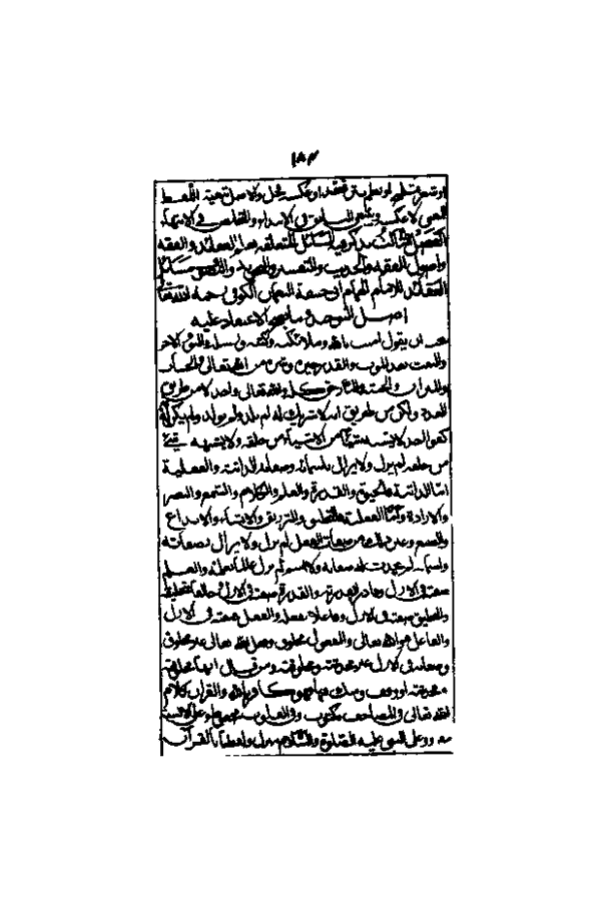 ١٨٣
اللفظ
المعنى لا عكسه في الابتداء والتخلص في الانتهاء
الفصل الثالث بذكر فيه المسائل المتعلقة بعلم العقائد والفقه
واصول الفقه والحديث والتفسير مسائل
العقائد للامام الهمام ابى حنيفة النعمان الكوفى رحمه الله تعالى
اصل التوحيد وما يصح الاعتماد عليه
يجب ان يقول امنت بالله وملائكته وكتبه ورسله واليوم الاخر
والبعث بعد الموت والقدر خيره وشره من الله تعالى والحساب
والميزان والجنة والنار حق كله والله تعالى واحد لا من طريق
العدد ولكن من طريق انه لا شريك له لم يلد ولم يولد ولم يكن له
كفوا احد لا يشبه شيئا من الاشياء من خلقه ولا يشبهه شئ
من خلقه لم يزل ولا يزال باسمائه وصفاته الذاتية والفعلية
اما الذاتية فالحيوة والقدرة والعلم والكلام والسمع والبصر
والارادة واما الفعلية فالتخليق والترزيق والانشاء والابداع
والصنع وغير ذلك من صفات الفعل لم يزل ولا يزال بصفاته
واسمائه لم يحدث له صفة ولا اسم لم يزل عالما بعلمه والعلم
صفة في الازل وقادرا بقدرته والقدرة صفة في الازل وخالقا بتخليقه
والتخليق صفة في الازل وفاعلا بفعله والفعل صفة في الازل
والفاعل هو الله تعالى والمفعول مخلوق وفعل الله تعالى غير مخلوق
وصفاته في الازل غير محدثة ولا مخلوقة ومن قال انها مخلوقة
او محدثة او وقف او شك فيها فهو كافر بالله والقران كلام
الله تعالى في المصاحف مكتوب وفي القلوب محفوظ وعلى الالسن
مقروء وعلى النبى عليه الصلوة والسلام منزل ولفظنا بالقرآن